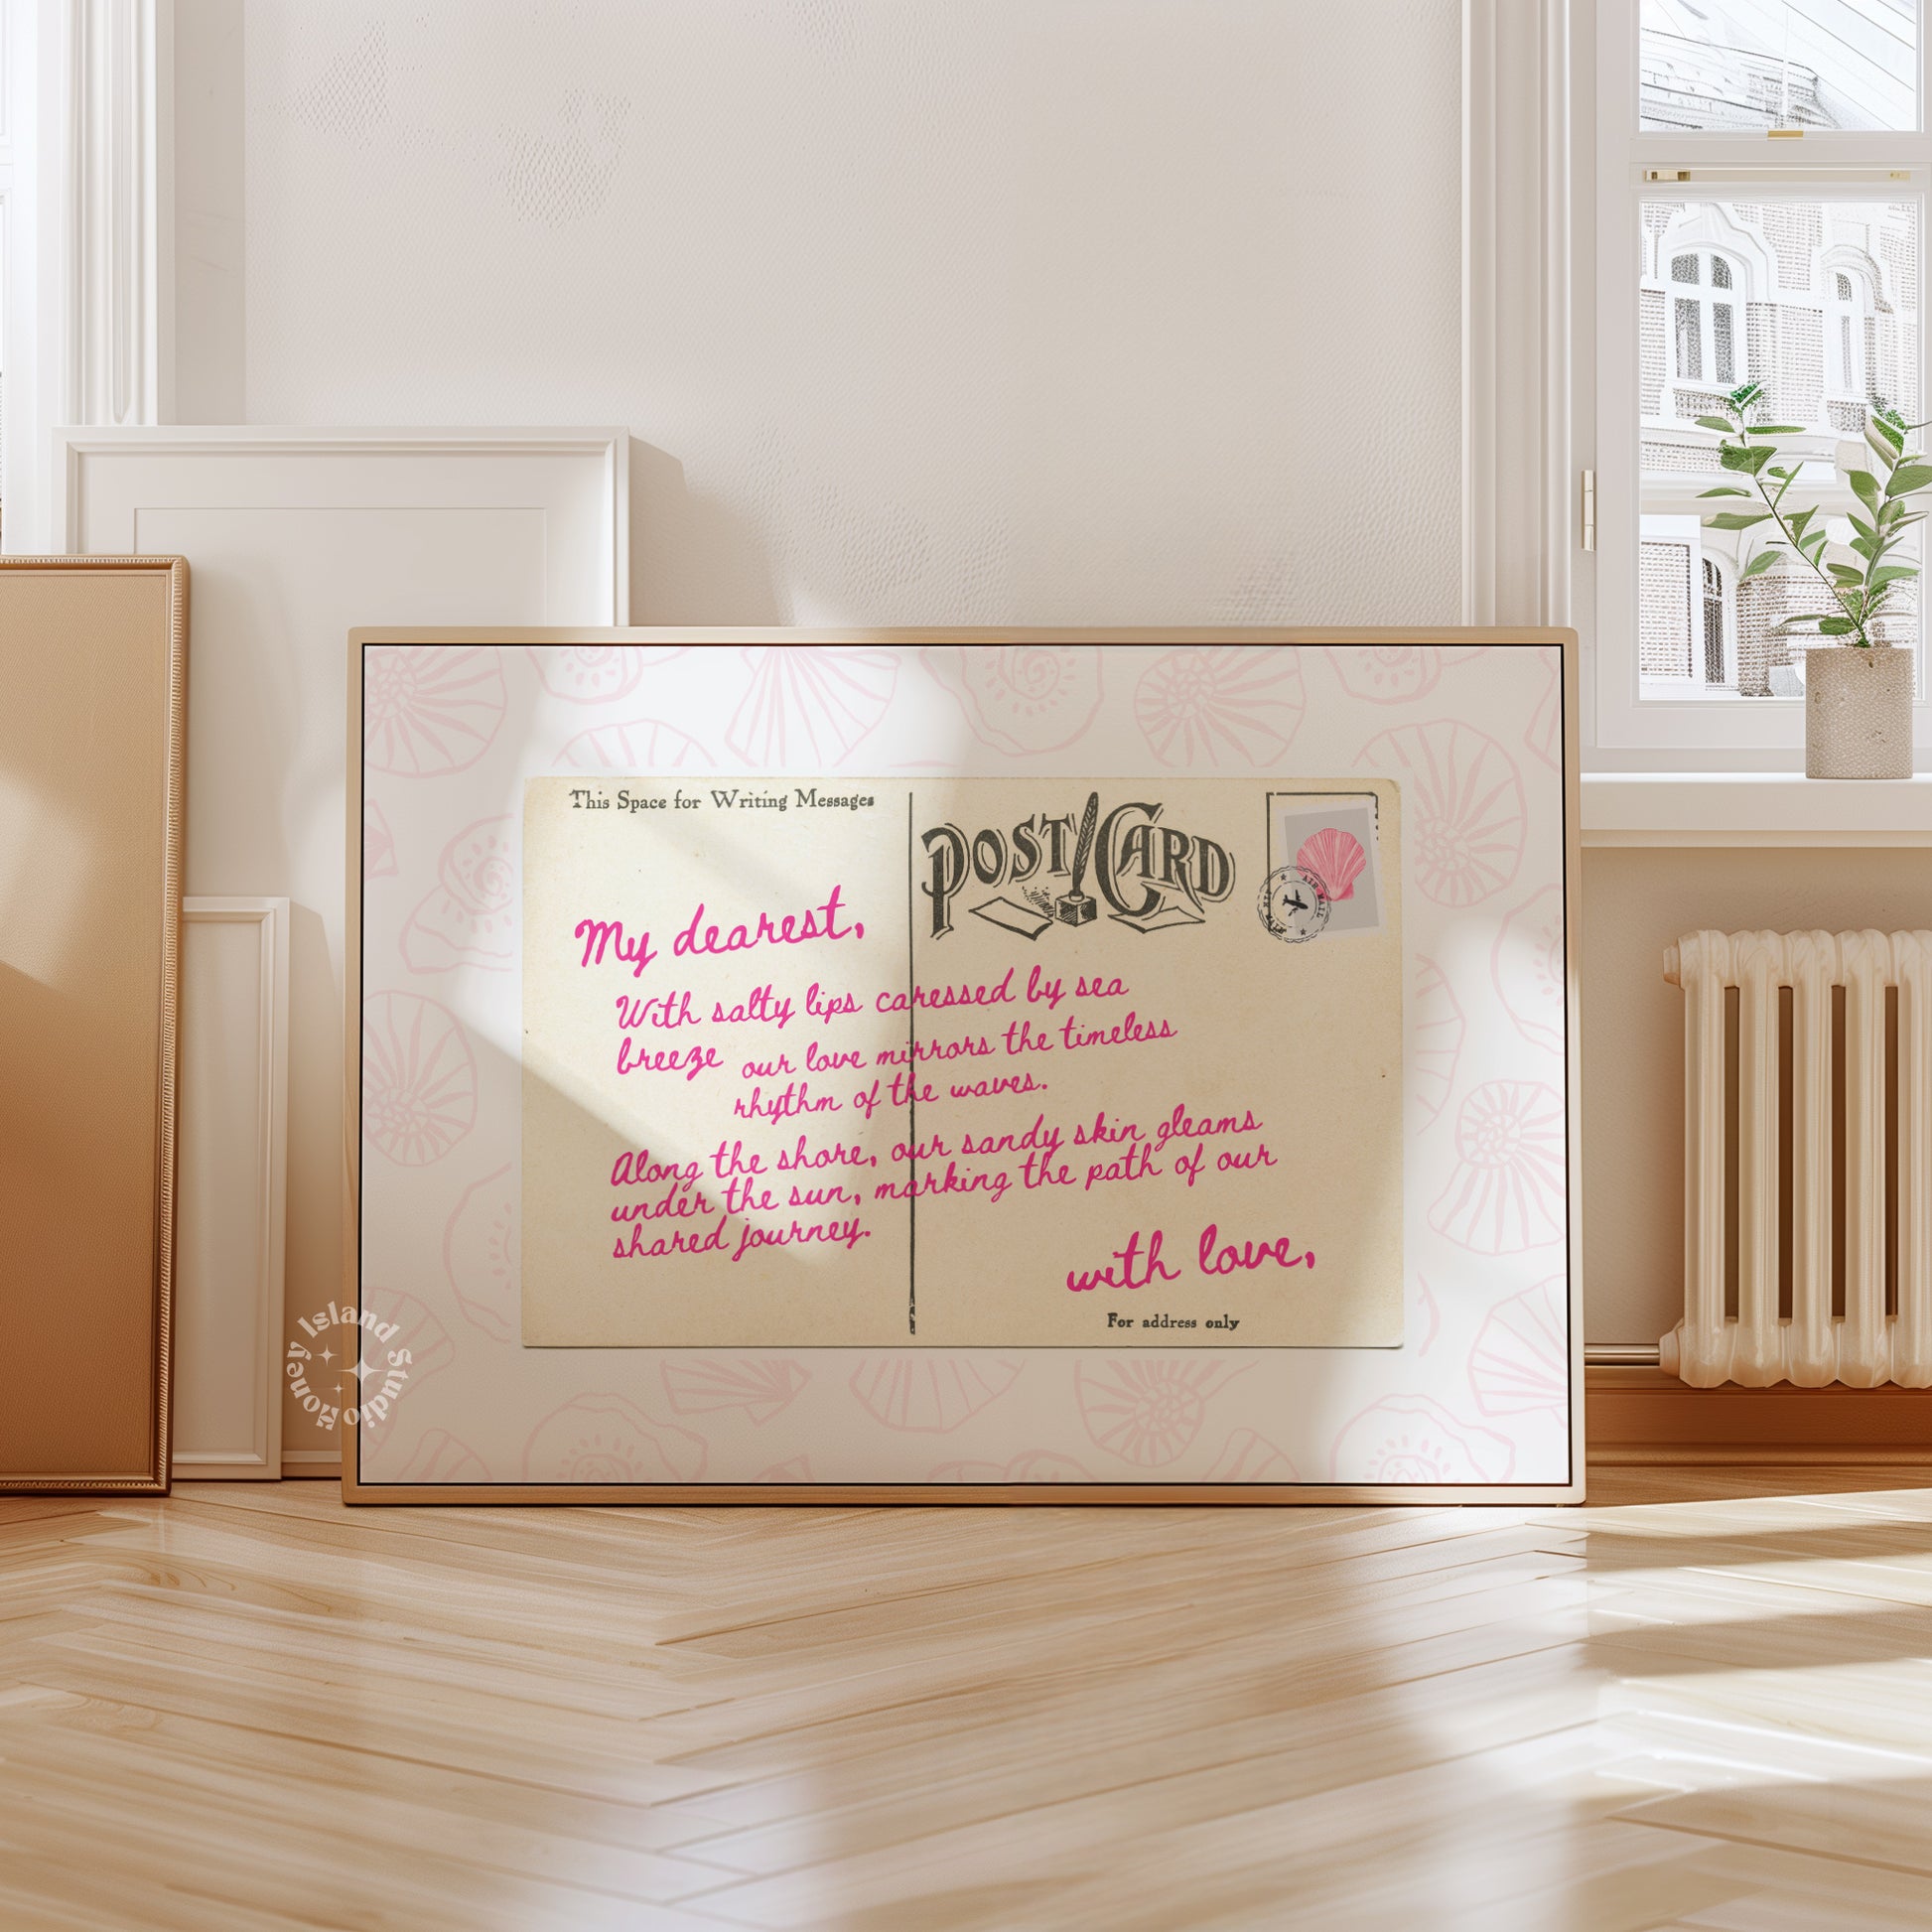 This Space for Writing Messages
POST CARD
AIR MAIL
My dearest,
With salty lips caressed by sea
breeze our love mirrors the timeless
rhythm of the waves.
Along the shore, our sandy skin gleams
under the sun, marking the path of our
shared journey.
with love,
For address only
Honey Island Studio